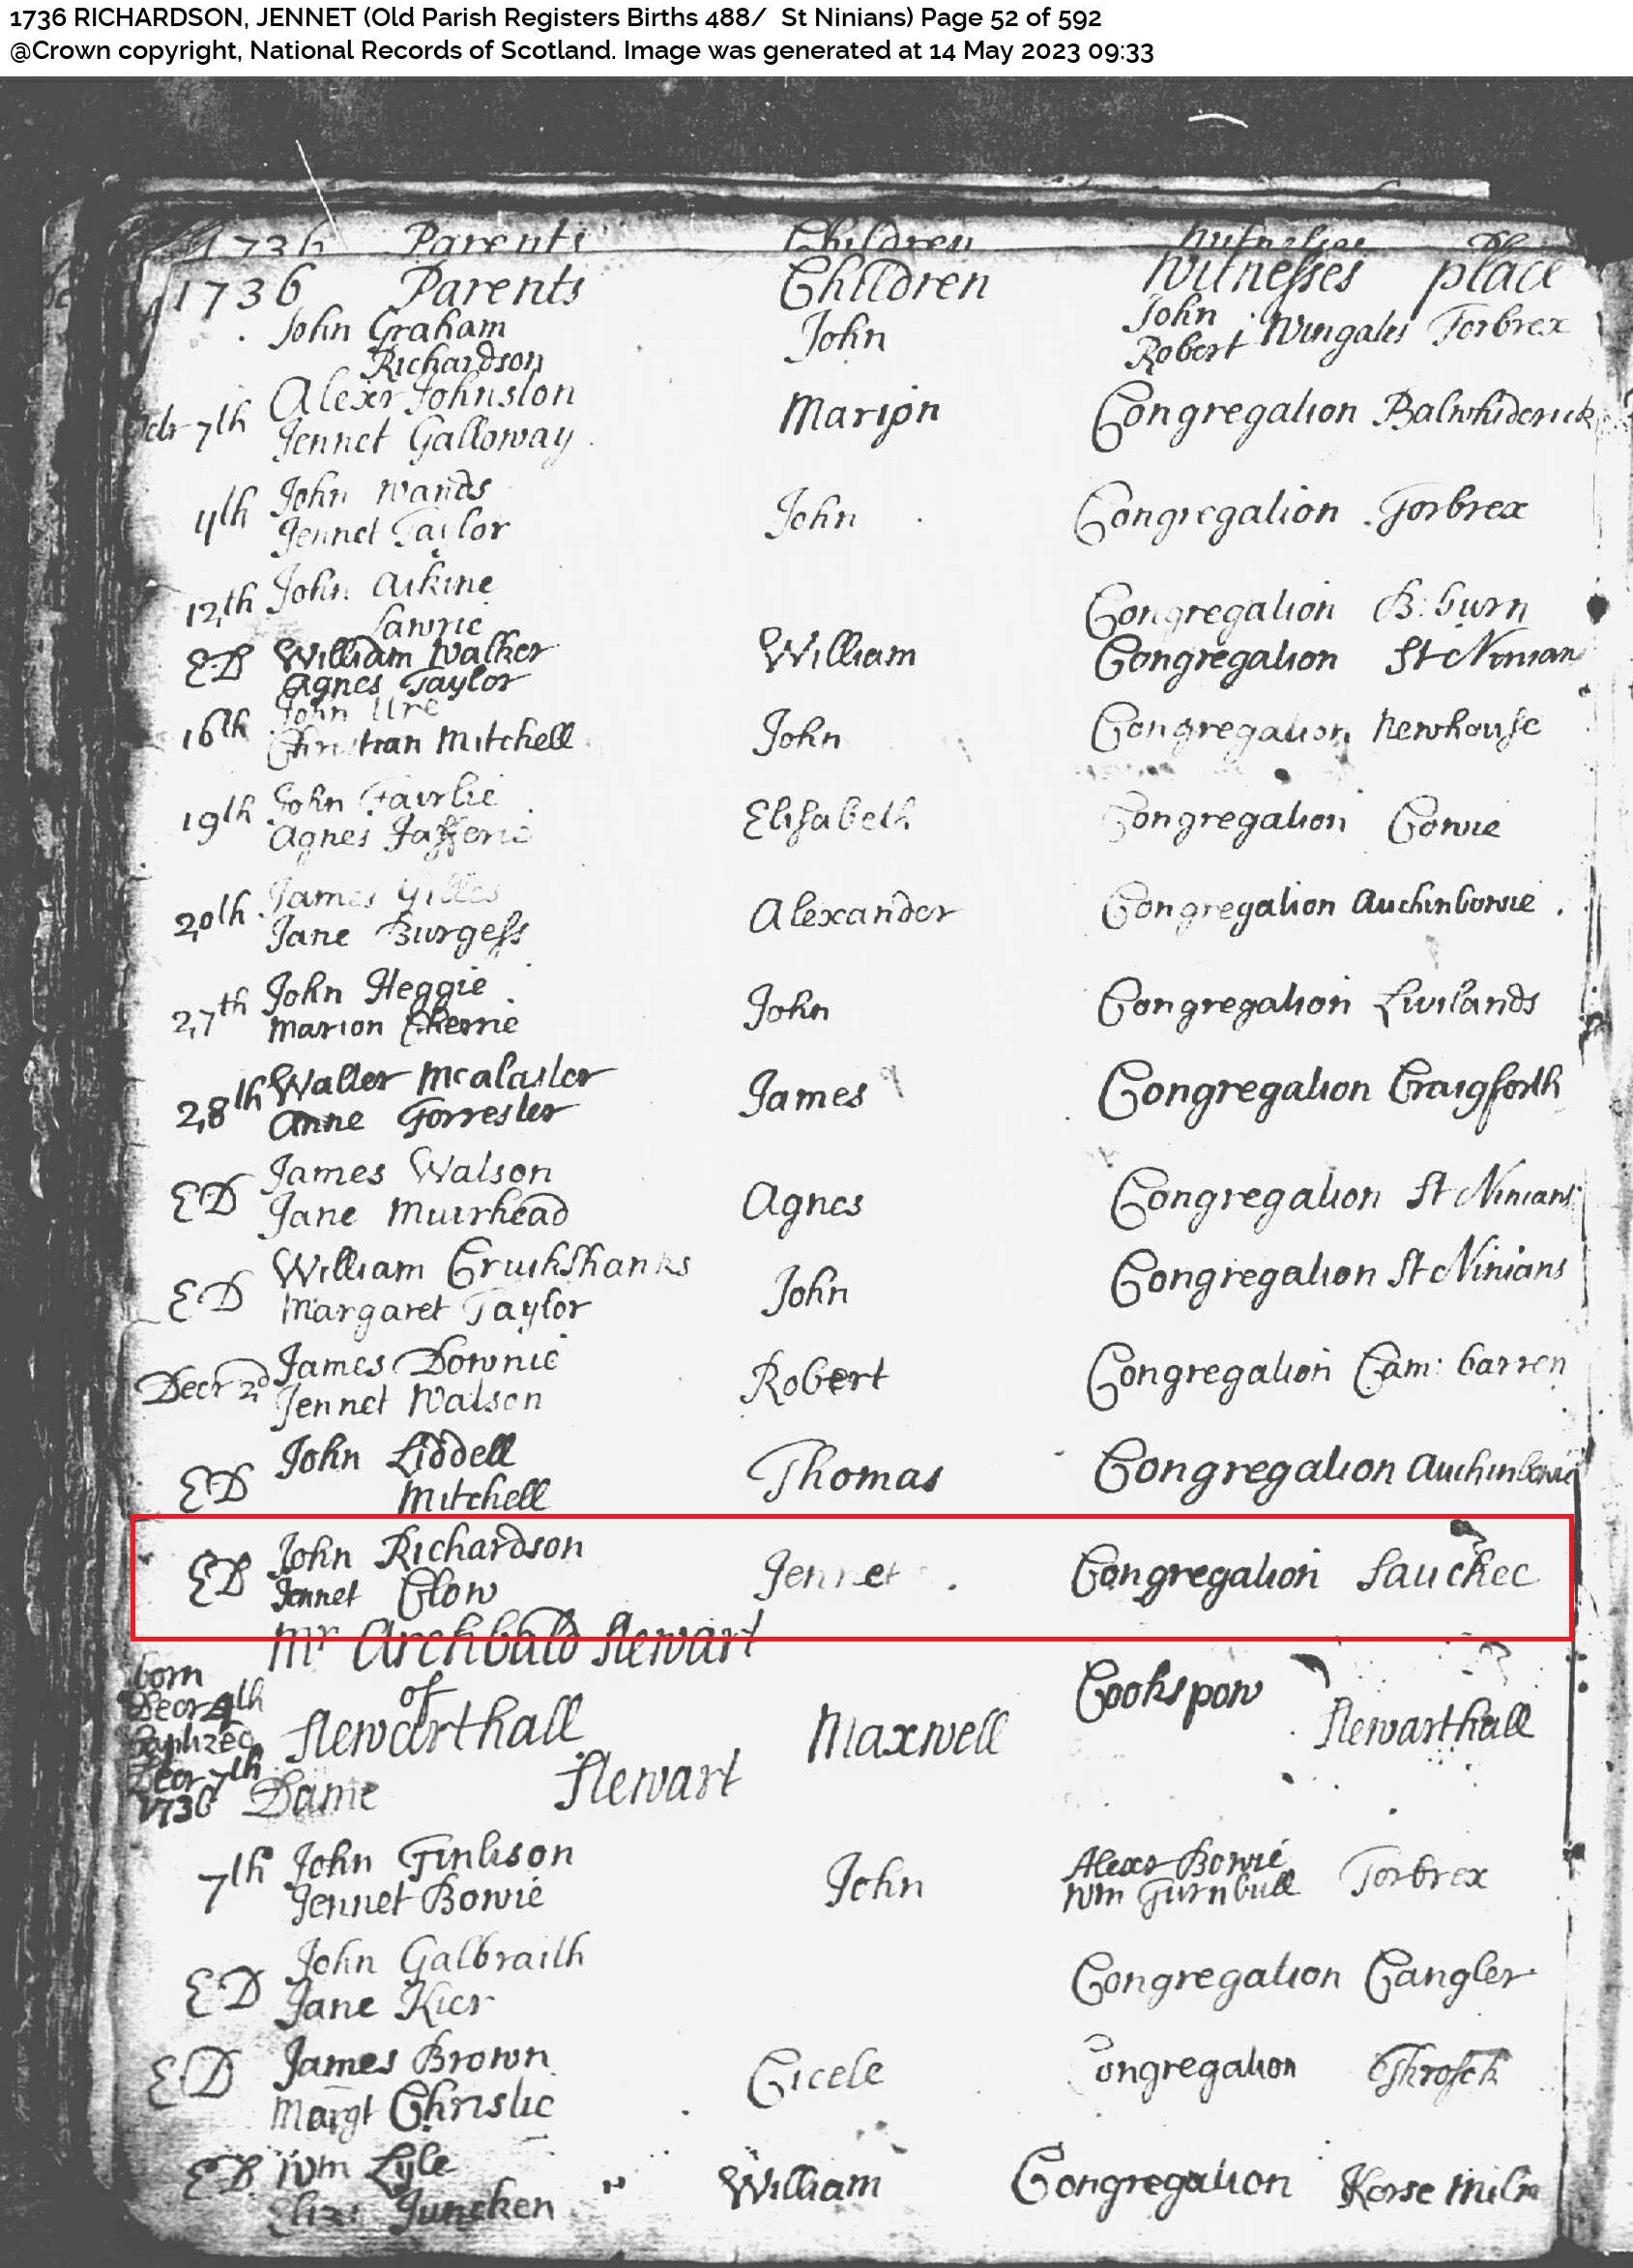 1736 RICHARDSON, JENNET (Old Parish Registers Births 488/ St Ninians) Page 52 of 592
@Crown copyright, National Records of Scotland. Image was generated at 14 May 2023 09:33
1736 Parents Children Witnesses
1736 Parents Children Witnesses place
John Graham John John Wingate Torbrex
Richardson Robert
7th Alexr Johnston Marion Congregation Balwhiderick
Jennet Galloway
11th John Wands John Congregation Torbrex
Jennet Taylor
12th John Aikine Congregation B:burn
Lawrie
ED William Walker William Congregation St Ninians
Agnes Taylor
16th John Ure John Congregation Newhouse
Christian Mitchell
19th John Fairlie Elisabeth Congregation Cowie
Agnes Jafferie
20th James Gilles Alexander Congregation Auchinbowie
Jane Burgess
27th John Heggie John Congregation Livilands
Marion Cherrie
28th Walter Mcalaster James Congregation Craigforth
Anne Forrester
ED James Watson Agnes Congregation St Ninians
Jane Muirhead
ED William Cruikshanks John Congregation St Ninians
Margaret Taylor
Decr 2d James Downie Robert Congregation Cam: barren
Jennet Watson
ED John Liddell Thomas Congregation Auchinbowie
Mitchell
ED John Richardson Jennet Congregation Sauchee
Jennet Clow
Mr Archbald Stewart
born
Decr 4th of Cookspow
Baptized Stewarthall Maxwell Stewarthall
Decr 7th Dame Stewart
1736
7th John Finlison John Alexr Bowie Torbrex
Jennet Bowie Wm Turnbull
ED John Galbraith Congregation Cangler
Jane Kier
ED James Brown Cicele Congregation Throsk
Margt Christie
ED Wm Lyle William Congregation Korse Miln
Eliz: Juncken